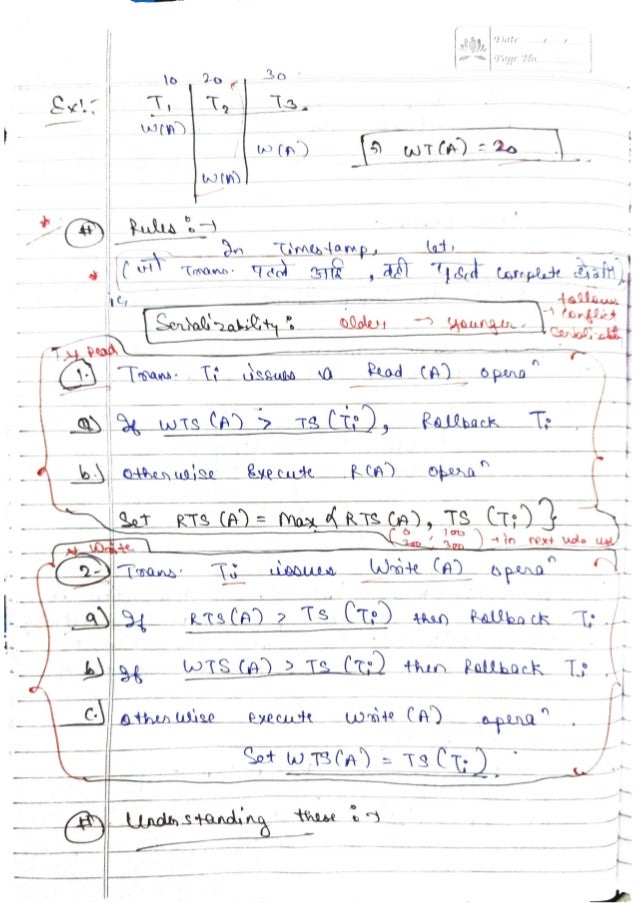 Date / /
Page No.
10 20 30
Ex!:- T₁ T₂ T₃
W(A)
W(A) WT(A) = 20
W(A)
* # Rules :→
In Timestamp,
* (जो Trans. पहले आति, वही पहले complete होगी)
Serializability : older → younger. follows → conflict
Read
1. Trans. Ti issues a Read (A) operaⁿ
a) If WTS (A) > TS (Ti), Rollback Ti
b.) otherwise Execute R(A) operaⁿ
Set RTS (A) = Max { RTS (A), TS (Ti) }
(0 200, 100 300) → in next vdo use
* Write
2- Trans. Ti issues Write (A) operaⁿ
a) If RTS (A) > TS (Ti) then Rollback Ti
b) If WTS (A) > TS (Ti) then Rollback Ti
c.) otherwise execute write (A) operaⁿ.
Set WTS (A) = TS (Ti).
# Understanding these :→